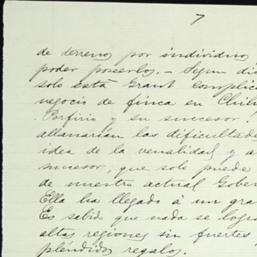 7
de terreno por individuo
poder poseerlos. – Segun di
solo está Grant complic
negocio de finca en Chihu
Porfirio y su sucesor!
allanarian las dificultade
idea de la venalidad y a
sucesor, que solo puede
de nuestro actual Gober
Ella ha llegado á un gra
Es sabido que nada se logra
altas regiones sin fuertes y
espléndidos regalos.